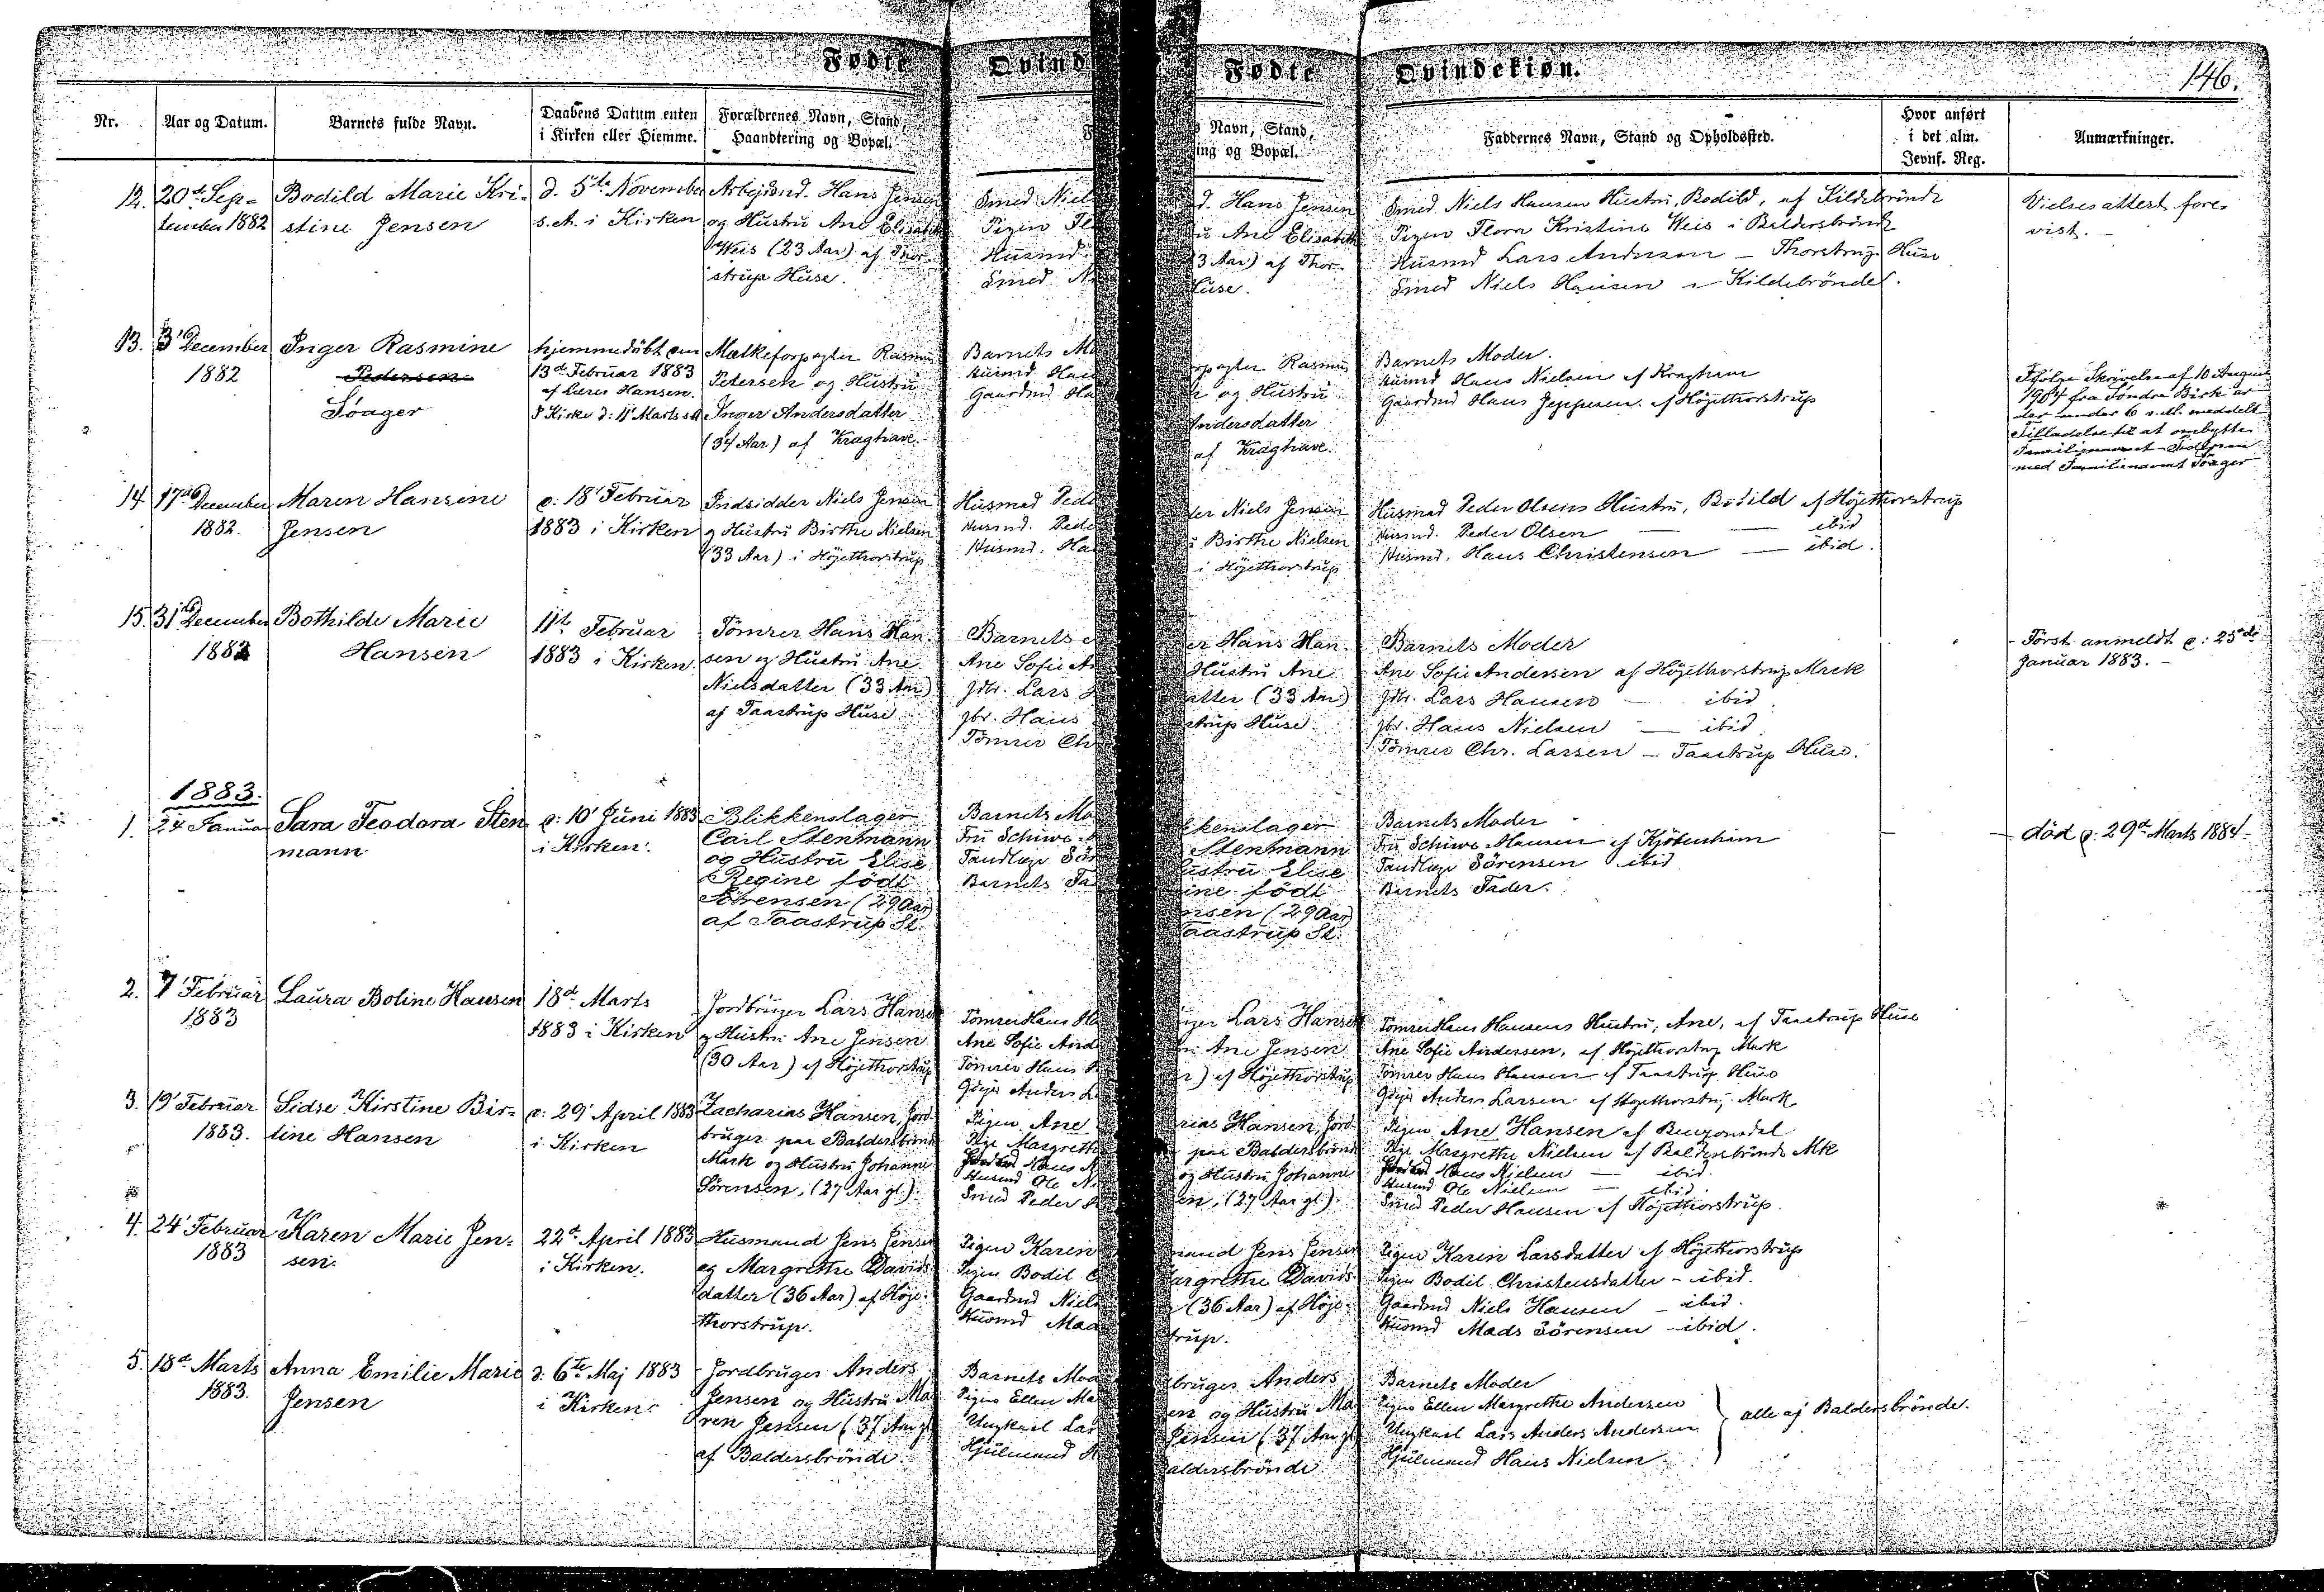 Fødte Qvindekiøn.
146.
Nr.
Aar og Datum.
Barnets fulde Navn.
Daabens Datum enten
i Kirken eller Hiemme.
Forældrenes Navn, Stand,
Haandtering og Bopæl.
Faddernes Navn, Stand og Opholdssted.
Hvor anført
i det alm.
Jevnf. Reg.
Anmærkninger.
12.
20d. Sep-
tember 1882
Bodild Marie Kri-
stine Jensen
d. 5te November
s. A. i Kirken
Arbejdsmd. Hans Jensen
og Hustru Ane Elisabeth
Weis (23 Aar) af Thor-
strup Huse.
Smed Niels Hansen Hustru, Bodild, af Kildebrønde
Pigen Flora Kristine Weis i Baldersbrønde
Husmd Lars Andersen — Thorstrup Huse
Smed Niels Hansen - Kildebrønde.
Vielsesattest fore-
vist. -
13.
3 December
1882
Inger Rasmine
Pedersen
Soager
hjemmedøbt den
13d. Februar 1883
af Lærer Hansen.
I Kirke d: 11 Marts s A
Mælkeforpagter Rasmus
Petersen og Hustru
Inger Andersdatter
(34 Aar) af Kraghave.
Barnets Moder.
Husmd Hans Nielsen af Kraghave
Gaardmd Hans Jeppesen af Højethorstrup
Ifølge Skrivelse af 10 August
1904 fra Søndre Birk er
der under 6 s. M. meddelt
Tilladelse til at ombytte
Familienavnet Pedersen
med Familienavnet Soager
14
17de December
1882.
Maren Hansine
Jensen
d: 18 Februar
1883 i Kirken
Indsidder Niels Jensen
og Hustru Birthe Nielsen
(33 Aar) i Højethorstrup
Husmad Peder Olsens Hustru, Bodild af Højethorstrup
Husmd. Peder Olsen — ibid
Husmd. Hans Christensen — ibid.
15.
31 December
1882
Bothilde Marie
Hansen
11te Februar
1883 i Kirken.
Tömrer Hans Han-
sen og Hustru Ane
Nielsdatter (33 Aar)
af Taastrup Huse
Barnets Moder
Ane Sofie Andersen af Højethorstrup Mark
Jdbr. Lars Hansen — ibid.
Jbr. Hans Nielsen — ibid.
Tömrer Chr. Larsen — Taastrup Huse.
Først anmeldt d: 25de
Januar 1883. -
1883.
1.
24 Januar
Sara Teodora Sten
mann
d: 10 Juni 1883
i Kirken.
Blikkenslager
Carl Stenmann
og Hustru Elise
Regine født
Sørensen (29 Aar)
af Taastrup St.
Barnets Moder
Fru Schiwe Hansen af Kjøbenhavn
Tandlæge Sörensen ibid
Barnets Fader.
død d: 29d Marts 1884
2.
7 Februar
1883
Laura Boline Hansen
18d. Marts
1883 i Kirken
Jordbruger Lars Hansen
og Hustru Ane Jensen
(30 Aar) af Højethorstrup
Tömrer Hans Hansens Hustru, Ane, af Taastrup Huse
Ane Sofie Andersen, af Højethorstrup Mark
Tömrer Hans Hansen af Taastrup Huse
Anders Larsen af Højethorstrup Mark
3.
19 Februar
1883.
Sidse Kirstine Bir-
tine Hansen
d: 29 April 1883
i Kirken
Zacharias Hansen, Jord-
bruger paa Baldersbrønde
Mark og Hustru Johanne
Sørensen, (27 Aar gl.).
Pigen Ane Hansen af Benzonsdal
Pige Margrethe Nielsen af Baldersbrønde Mk
Hans Nielsen — ibid.
Husmd Ole Nielsen — ibid.
Smed Peder Hansen af Højethorstrup.
4.
24 Februar
1883
Karen Marie Jen-
sen.
22d. April 1883
i Kirken.
Husmand Jens Jensen
og Margrethe Davids-
datter (36 Aar) af Høje-
thorstrup.
Pigen Karen Larsdatter af Højethorstrup
Pigen Bodil Christensdatter - ibid.
Gaardmd Niels Hansen - ibid.
Husmd Mads Sörensen - ibid.
5.
18d. Marts
1883.
Anna Emilie Marie
Jensen
d. 6te Maj 1883
i Kirken.
Jordbruger Anders
Jensen og Hustru Ma-
ren Jensen (37 Aar gl)
af Baldersbrønde.
Barnets Moder
Pigen Ellen Margrethe Andersen
Ungkarl Lars Anders Andersen
Hjulmand Hans Nielsen
alle af Baldersbrønde.